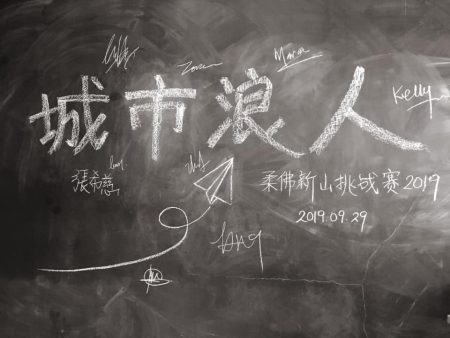 城市浪人
Kelly
張希慈
柔佛新山挑战赛2019
2019.09.29